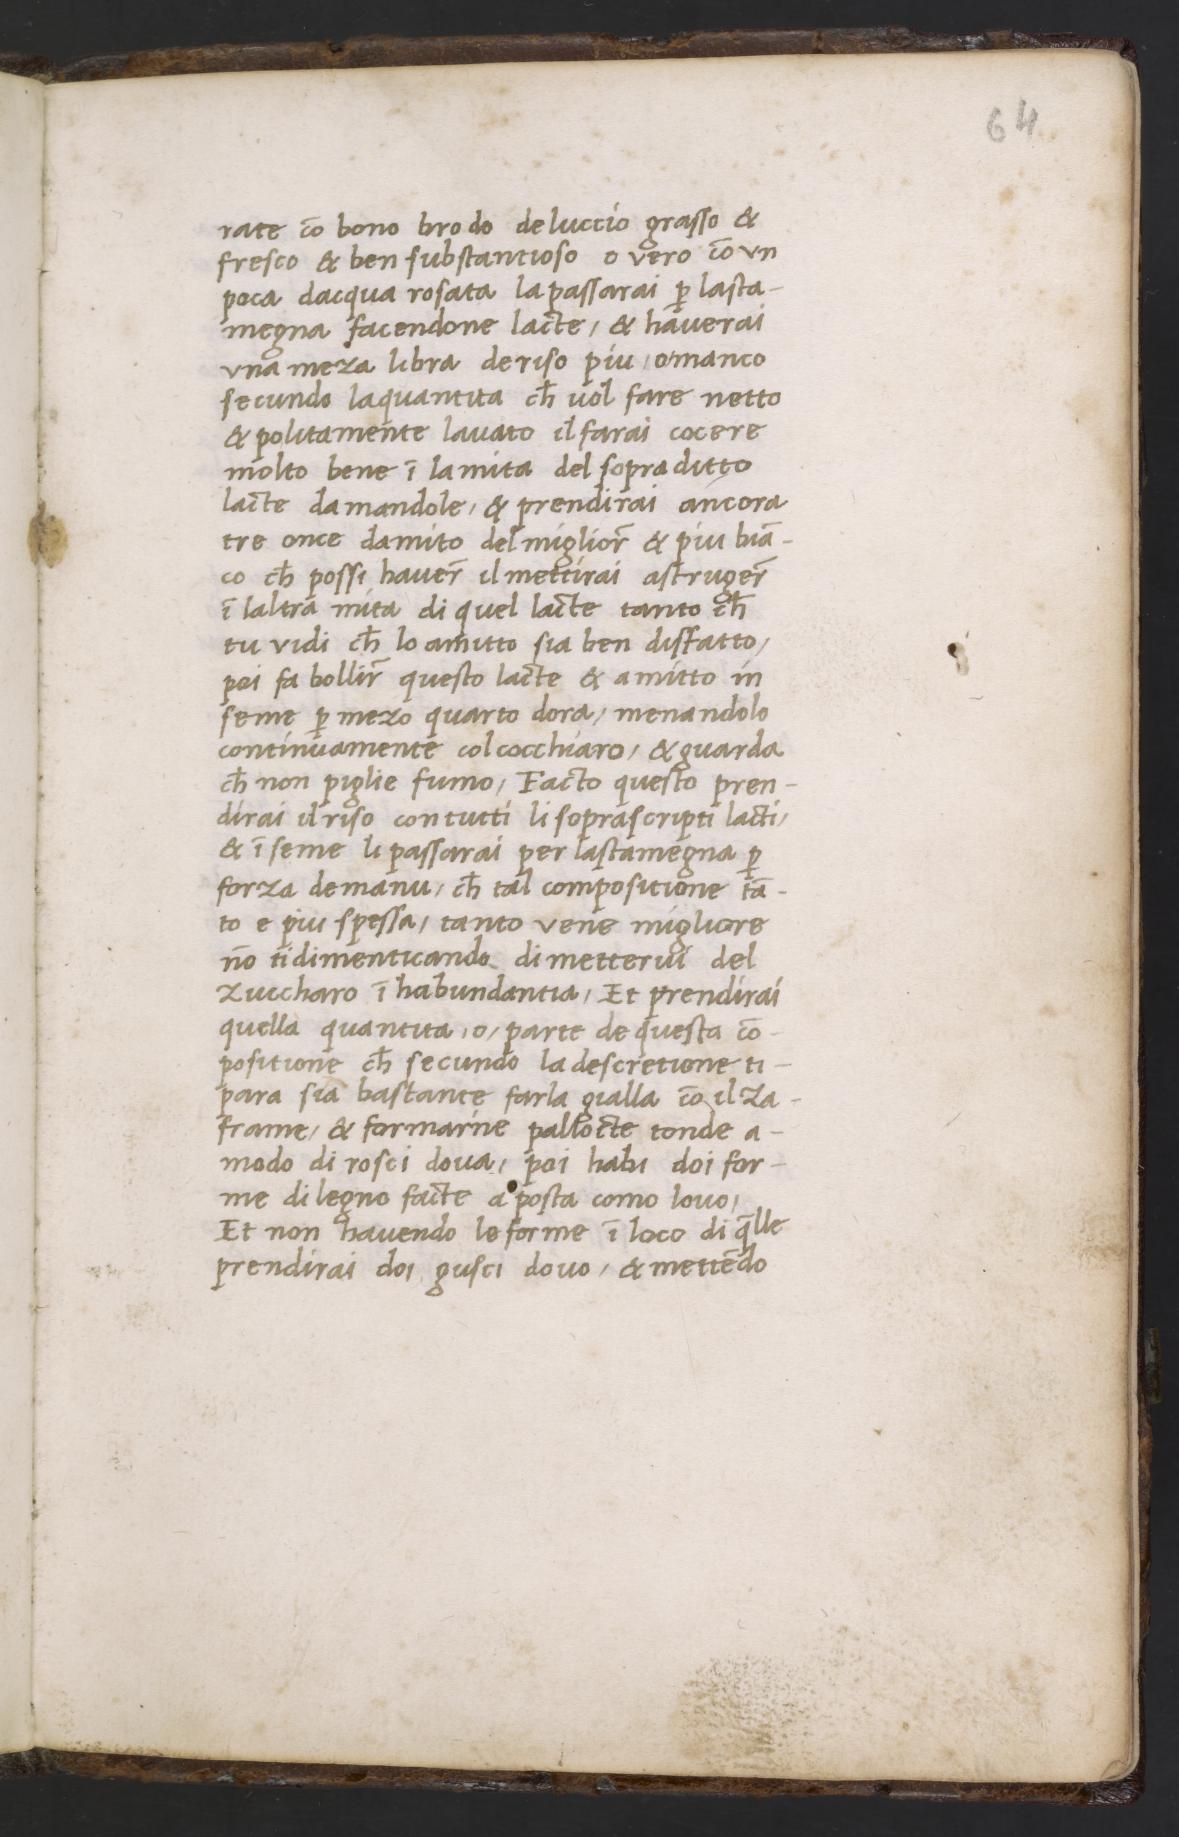 64
rate cō bono brodo de luccio grasso &
fresco & ben substantioso o vero cō vn
poca dacqua rosata la passarai p̲ lasta-
megna facendone lacte, & haverai
vna meza libra de riso piu, o manco
secundo la quantita ch̄ vol fare netto
& politamente lauato il farai cocere
molto bene ī la mita del sopra ditto
lacte da mandole, & prendirai ancora
tre once damito del miglior̄ & piu biā-
co ch̄ possi haver̄ il mettirai astruger̄
ī laltra mita di quel lacte tanto ch̄
tu vidi ch̄ lo amitto sia ben disfatto,
poi fa bollir̄ questo lacte & amitto in
seme p̲ mezo quarto dora, menandolo
continuamente col cocchiaro, & guarda
ch̄ non piglie fumo, Facto questo pren-
dirai il riso con tutti li soprascripti lacti,
& ī seme li passarai per lastamegna p̲
forza de manu, ch̄ tal compositione tā-
to e piu spessa, tanto vene migliore
nō ti dimenticando di metterui del
Zuccharo ī habundantia, Et prendirai
quella quantita, o, parte de questa cō-
positione ch̄ secundo la descretione ti-
para sia bastante farla gialla cō il Za-
frame, & formarne pallocte tonde a-
modo di rosci dova, poi habi doi for-
me di legno facte a posta como lovo,
Et non havendo le forme ī loco di q̄lle
prendirai doi gusci dovo, & mettēdo